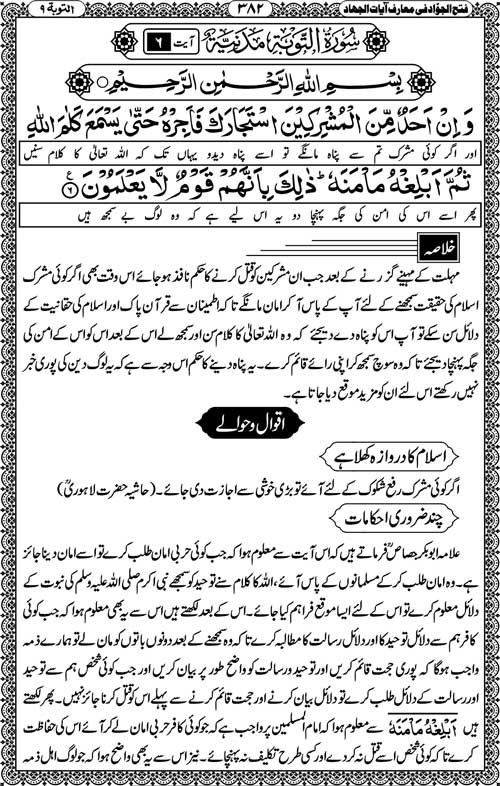 فتح الجوّاد فی معارف آیات الجہاد
۳۸۲
التوبة ۹
سُوْرَةُ التَّوْبَةِ مَدَنِيَّةٌ
آیت ۶
بِسْمِ اللهِ الرَّحْمٰنِ الرَّحِيْمِ
وَ اِنْ اَحَدٌ مِّنَ الْمُشْرِكِيْنَ اسْتَجَارَكَ فَاَجِرْهُ حَتّٰى يَسْمَعَ كَلٰمَ اللهِ
اور اگر کوئی مشرک تم سے پناہ مانگے تو اسے پناہ دیدو یہاں تک کہ اللہ تعالیٰ کا کلام سنیں
ثُمَّ اَبْلِغْهُ مَاْمَنَهٗ ؕ ذٰلِكَ بِاَنَّهُمْ قَوْمٌ لَّا يَعْلَمُوْنَ ﴿۶﴾
پھر اسے اس کی امن کی جگہ پہنچا دو یہ اس لیے ہے کہ وہ لوگ بے سمجھ ہیں
خلاصہ
مہلت کے مہینے گزرنے کے بعد جب ان مشرکین کو قتل کرنے کا حکم نافذ ہو جائے اس وقت بھی اگر کوئی مشرک
اسلام کی حقیقت سمجھنے کے لئے آپ کے پاس آ کر امان مانگے تاکہ اطمینان سے قرآن پاک اور اسلام کی حقانیت کے
دلائل سن سکے تو آپ اس کو پناہ دے دیجئے کہ وہ اللہ تعالیٰ کا کلام سن اور سمجھ لے اس کے بعد اس کو اس کے امن کی
جگہ پہنچا دیجئے تاکہ وہ سوچ سمجھ کر اپنی رائے قائم کرے۔ یہ پناہ دینے کا حکم اس وجہ سے ہے کہ یہ لوگ دین کی پوری خبر
نہیں رکھتے اس لئے ان کو مزید موقع دیا جاتا ہے۔
اقوال و حوالے
اسلام کا دروازہ کھلا ہے
اگر کوئی مشرک رفع شکوک کے لئے آئے تو بڑی خوشی سے اجازت دی جائے۔ (حاشیہ حضرت لاہوریؒ)
چند ضروری احکامات
علامہ ابو بکر جصاصؒ فرماتے ہیں کہ اس آیت سے معلوم ہوا کہ جب کوئی حربی امان طلب کرے تو اسے امان دینا جائز
ہے۔ وہ امان طلب کر کے مسلمانوں کے پاس آئے، اللہ کا کلام سنے تو حید کو سمجھے نبی اکرم صلی اللہ علیہ وسلم کی نبوت کے
دلائل معلوم کرے تو اس کے لئے ایسا موقع فراہم کیا جائے۔ اس کے بعد لکھتے ہیں اس سے یہ بھی معلوم ہوا کہ جب کوئی
کافر ہم سے دلائل توحید کا اور دلائل رسالت کا مطالبہ کرے تاکہ وہ سمجھنے کے بعد دونوں باتوں کو مان لے تو ہمارے ذمہ
واجب ہوگا کہ پوری حجت قائم کریں اور توحید و رسالت کو واضح طور پر بیان کریں اور جب کوئی شخص ہم سے توحید
اور رسالت کے دلائل طلب کرے تو دلائل بیان کرنے اور حجت قائم کرنے سے پہلے اس کو قتل کرنا جائز نہیں۔ پھر لکھتے
ہیں اَبْلِغْهُ مَاْمَنَهٗ سے معلوم ہوا کہ امام المسلمین پر واجب ہے کہ جو کوئی کافر حربی امان لے کر آئے اس کی حفاظت
کرے تاکہ کوئی شخص اسے قتل نہ کردے اور کسی طرح تکلیف نہ پہنچائے۔ نیز اس سے یہ بھی واضح ہوا کہ جو لوگ اہل ذمہ